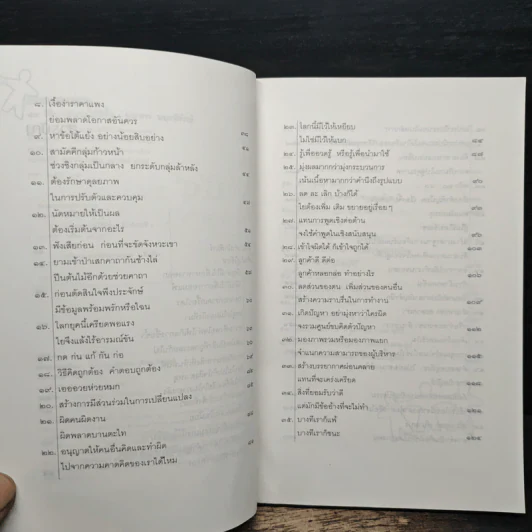 ๘. เงื้อง่าราคาแพง
ย่อมพลาดโอกาสอันควร
๙. หาข้อโต้แย้ง อย่างน้อยสิบอย่าง
๑๐. สามัคคีกลุ่มก้าวหน้า
ช่วงชิงกลุ่มเป็นกลาง ยกระดับกลุ่มล้าหลัง
๑๑. ต้องรักษาดุลยภาพ
ในการปรับตัวและควบคุม
๑๒. นัดหมายให้เป็นผล
ต้องเริ่มต้นจากอะไร
๑๓. ฟังเสียก่อน ก่อนที่จะขัดจังหวะเขา
๑๔. ยามเช้าป่าเสกคาถากันช้างไล่
ปีนต้นไม้อีกด้วยช่วยคาถา
๑๕. ก่อนตัดสินใจพึงประจักษ์
มีข้อมูลพร้อมพรักหรือไฉน
๑๖. โลกยุคนี้เครียดพอแรง
ใยจึงแล้งไร้อารมณ์ขัน
๑๗. กด ก่น แก้ กัน ก่อ
๑๘. วิธีคิดถูกต้อง คำตอบถูกต้อง
๑๙. เออออวยห่วยหมก
๒๐. สร้างการมีส่วนร่วมในการเปลี่ยนแปลง
๒๑. ผิดคนผิดงาน
ผิดพลาดบานตะไท
๒๒. อนุญาตให้คนอื่นคิดและทำผิด
ไปจากความคาดคิดของเราได้ไหม
๒๓. โลกนี้มีไว้ให้เหยียบ
ไม่ใช่มีไว้ให้แบก ๘๔
๒๔. รู้เพื่ออวดรู้ หรือรู้เพื่อนำมาใช้ ๘๗
๒๕. มุ่งผลมากกว่ามุ่งกระบวนการ
เน้นเนื้อหามากกว่าคำนึงถึงรูปแบบ
๒๖. ลด ละ เลิก บ้างก็ได้
ใยต้องเพิ่ม เติม ขยายอยู่เรื่อยๆ
๒๗. แทนการพูดเชิงต่อต้าน
จงใช้คำพูดในเชิงสนับสนุน
๒๘. เข้าใจผิดได้ ก็เข้าใจถูกได้
๒๙. ลูกค้าดี ดีต่อ
ลูกค้าหลอกล่อ ทำอย่างไร
๓๐. ลดส่วนของตน เพิ่มส่วนของคนอื่น
สร้างความราบรื่นในการทำงาน
๓๑. เกิดปัญหา อย่ามุ่งหาว่าใครผิด
จงรวมศูนย์ขบคิดตัวปัญหา ๑๑๒
๓๒. มองภาพรวมพร้อมมองภาพแยก
จำแนกความสามารถของผู้บริหาร
๓๓. สร้างบรรยากาศผ่อนคลาย
แทนที่จะเคร่งเครียด
๓๔. สิ่งที่ยอมรับว่าดี
แต่มักมีข้ออ้างที่จะไม่ทำ ๑๒๑
๓๕. บางทีเราก็แพ้
บางทีเราก็ชนะ ๑๒๔